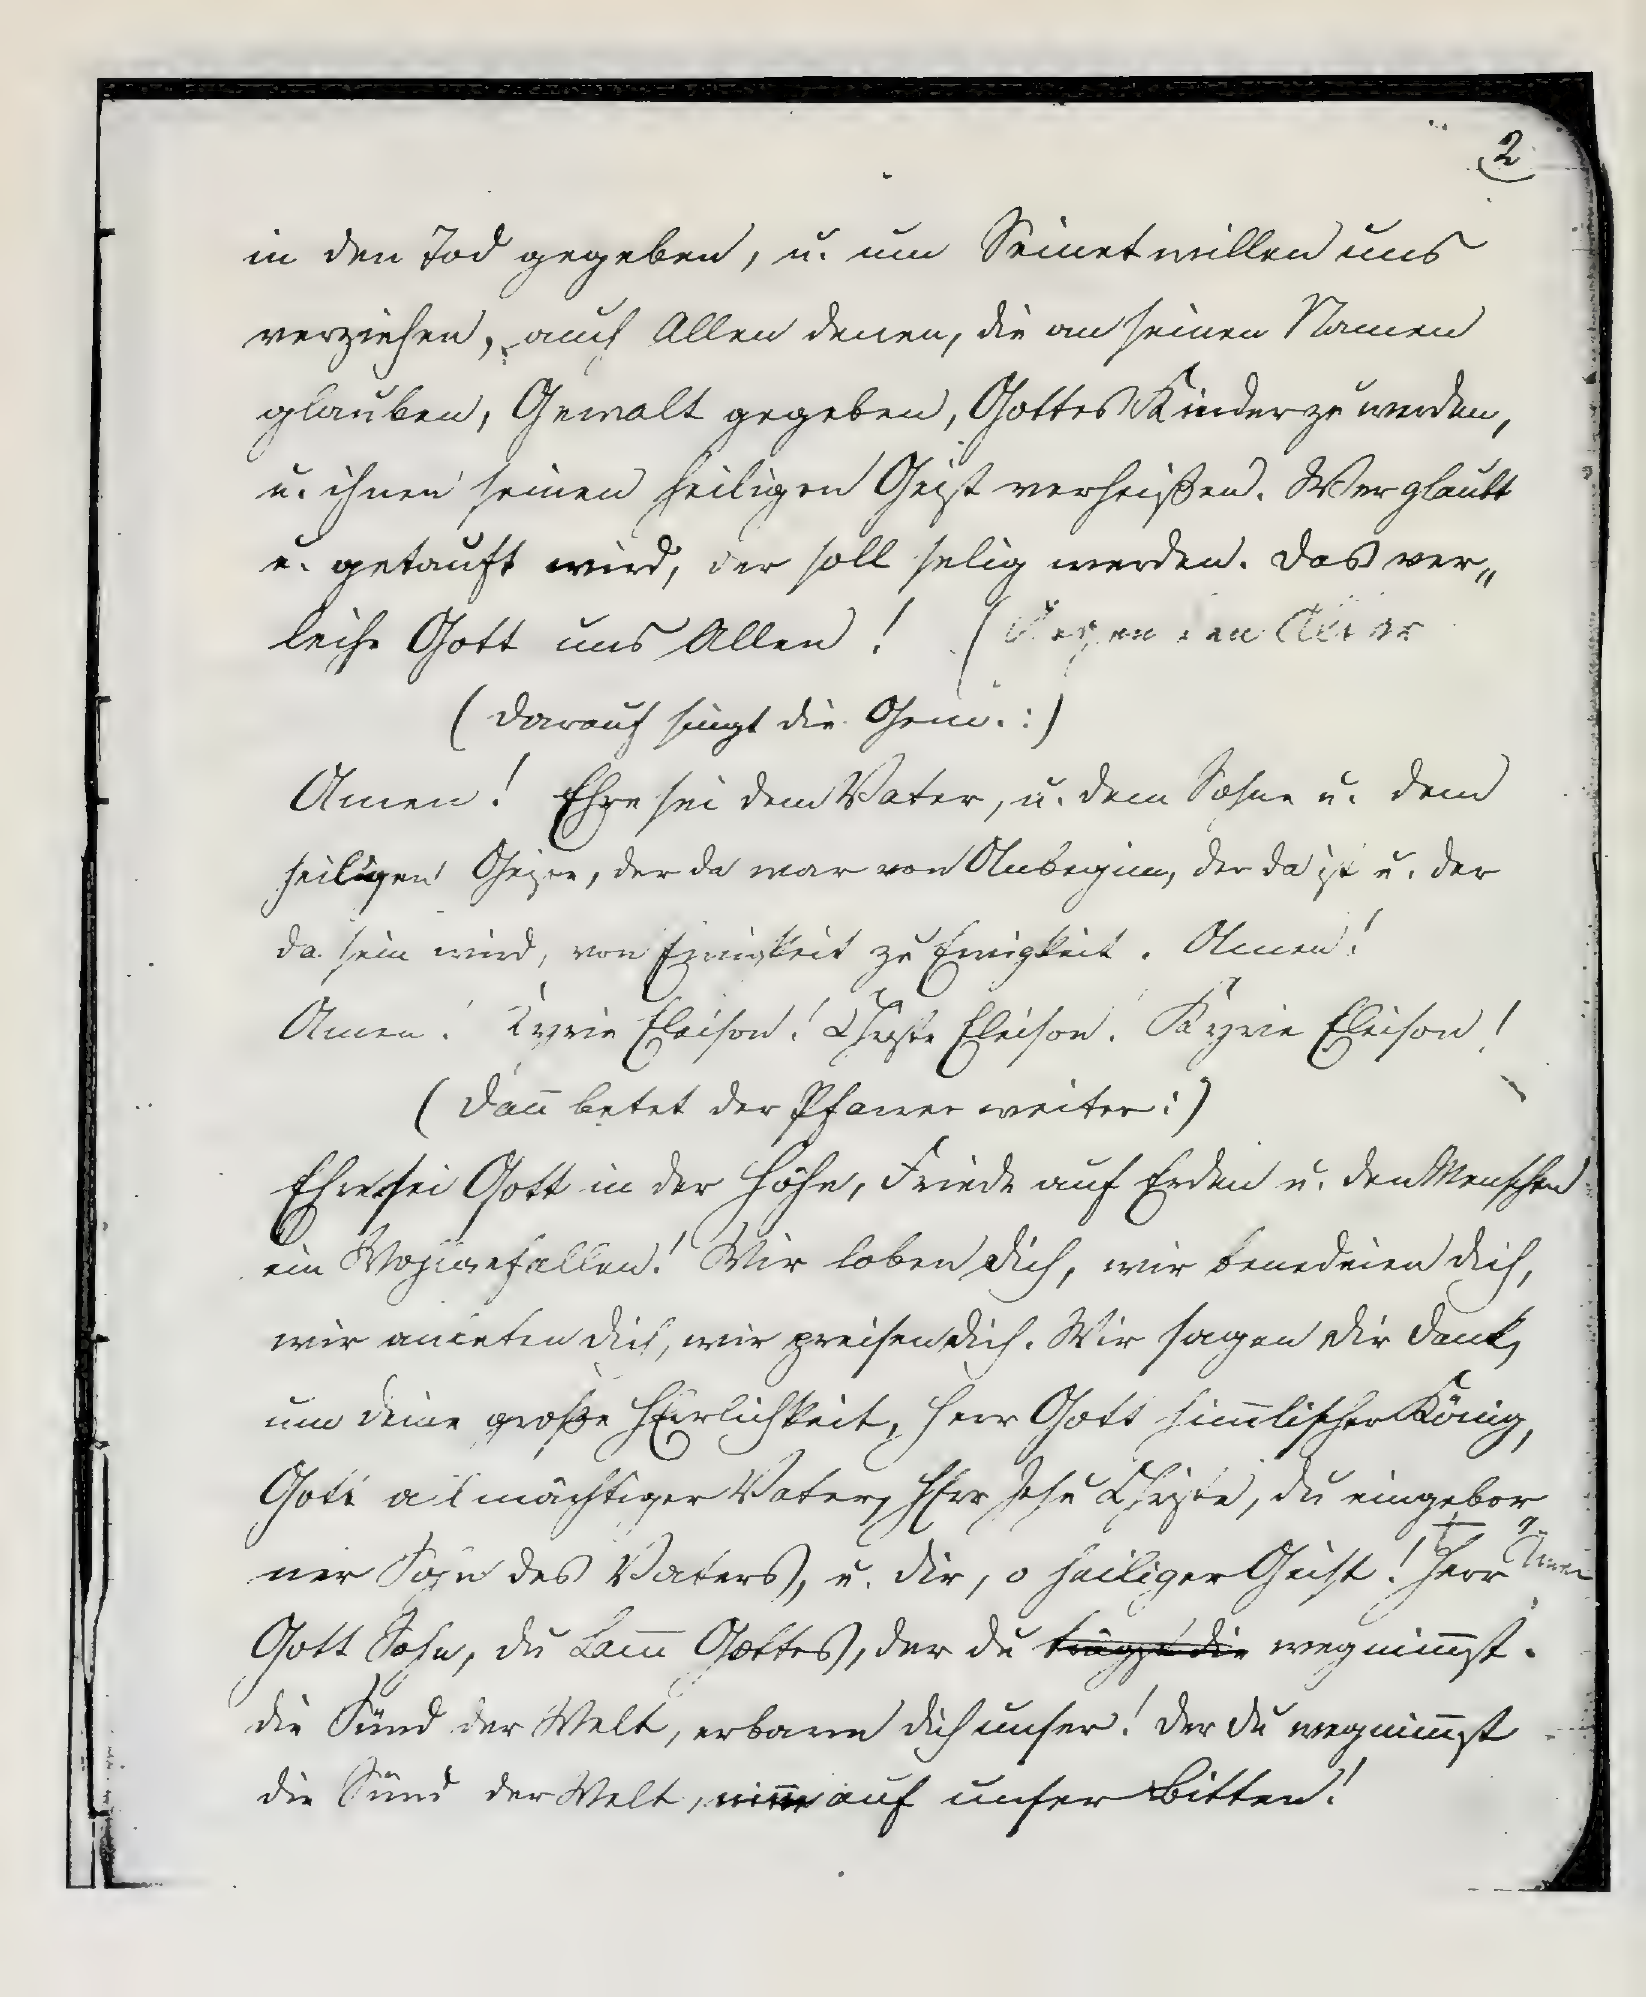 2
in den Tod gegeben, u. um Seinetwillen uns
verziehen, auch Allen denen, die an seinen Namen
glauben, Gewalt gegeben, Gottes Kinder zu werden,
u. ihnen seinen heiligen Geist verheißen. Wer glaubt
u. getauft wird, der soll selig werden. Das ver„
leihe Gott uns Allen! (Gegen den Altar
(Darauf singt die Gem.:)
Amen! Ehre sei dem Vater, u. dem Sohne u. dem
heiligen Geiste, der da war von Anbeginn, der da ist u. der
da sein wird, von Ewigkeit zu Ewigkeit. Amen!
Amen! Kyrie Eleison! Christe Eleison! Kyrie Eleison!
(Dan̄ betet der Pfarrer weiter:)
Ehre sei Gott in der Höhe, Friede auf Erden u. den Menschen
ein Wohlgefallen! Wir loben dich, wir benedeien dich,
wir anbeten dich, wir preisen dich. Wir sagen dir Dank,
um deine große HErrlichkeit, Herr Gott him̄lischer König,
Gott allmächtiger Vater, HErr Jesu Christe, du eingebor
ner Sohn des Vaters, u. dir, o heiliger Geist! Herr
Gott Sohn, du Lam̄ Gottes, der du wegnim̄st
die Sünd der Welt, erbarm dich unser! Der du wegnim̄st
die Sünd der Welt, nim̄ auf unser Bitten!